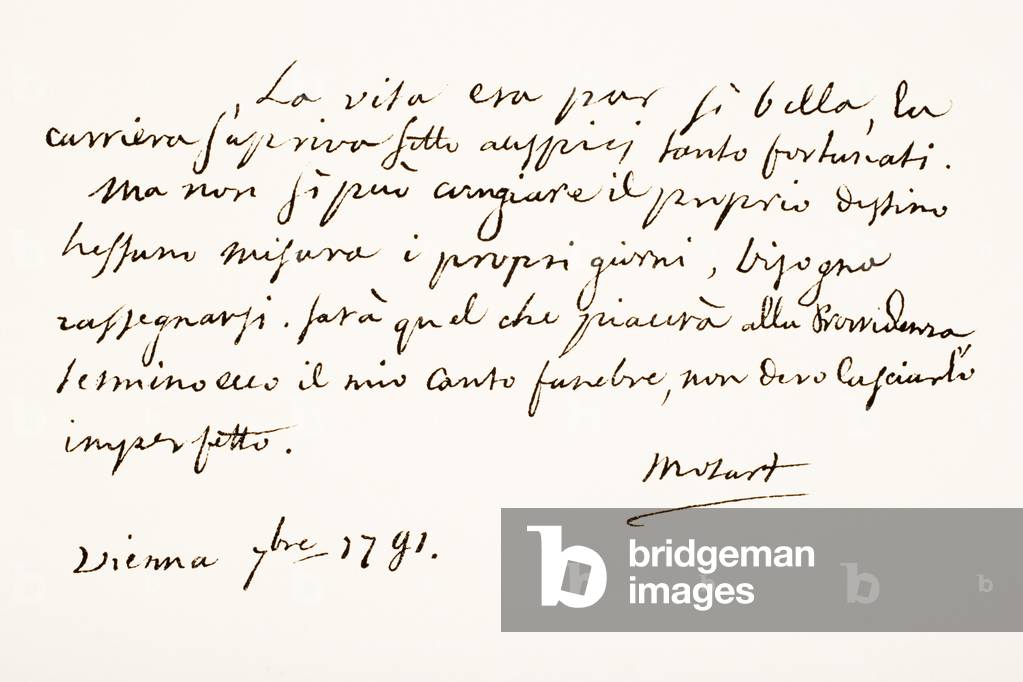 La vita era pur sì bella, la
carriera s'apriva sotto auspici tanto fortunati.
Ma non si può cangiare il proprio destino
nessuno misura i propri giorni, bisogna
rassegnarsi. sarà quel che piacerà alla Provvidenza
termino ecco il mio canto funebre, non devo lasciarlo
imperfetto.
Mozart
Vienna 7bre 1791.
bridgeman
images